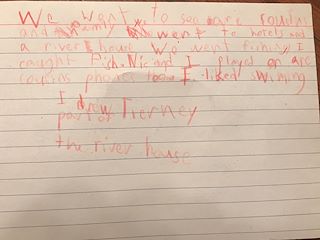 We went to see are cousins
and family went to hotels and
a river house We went fishing I
caught fish. Nic and I played on are
cousins phones too I liked swiming
I drew Tierney
part of
the river house